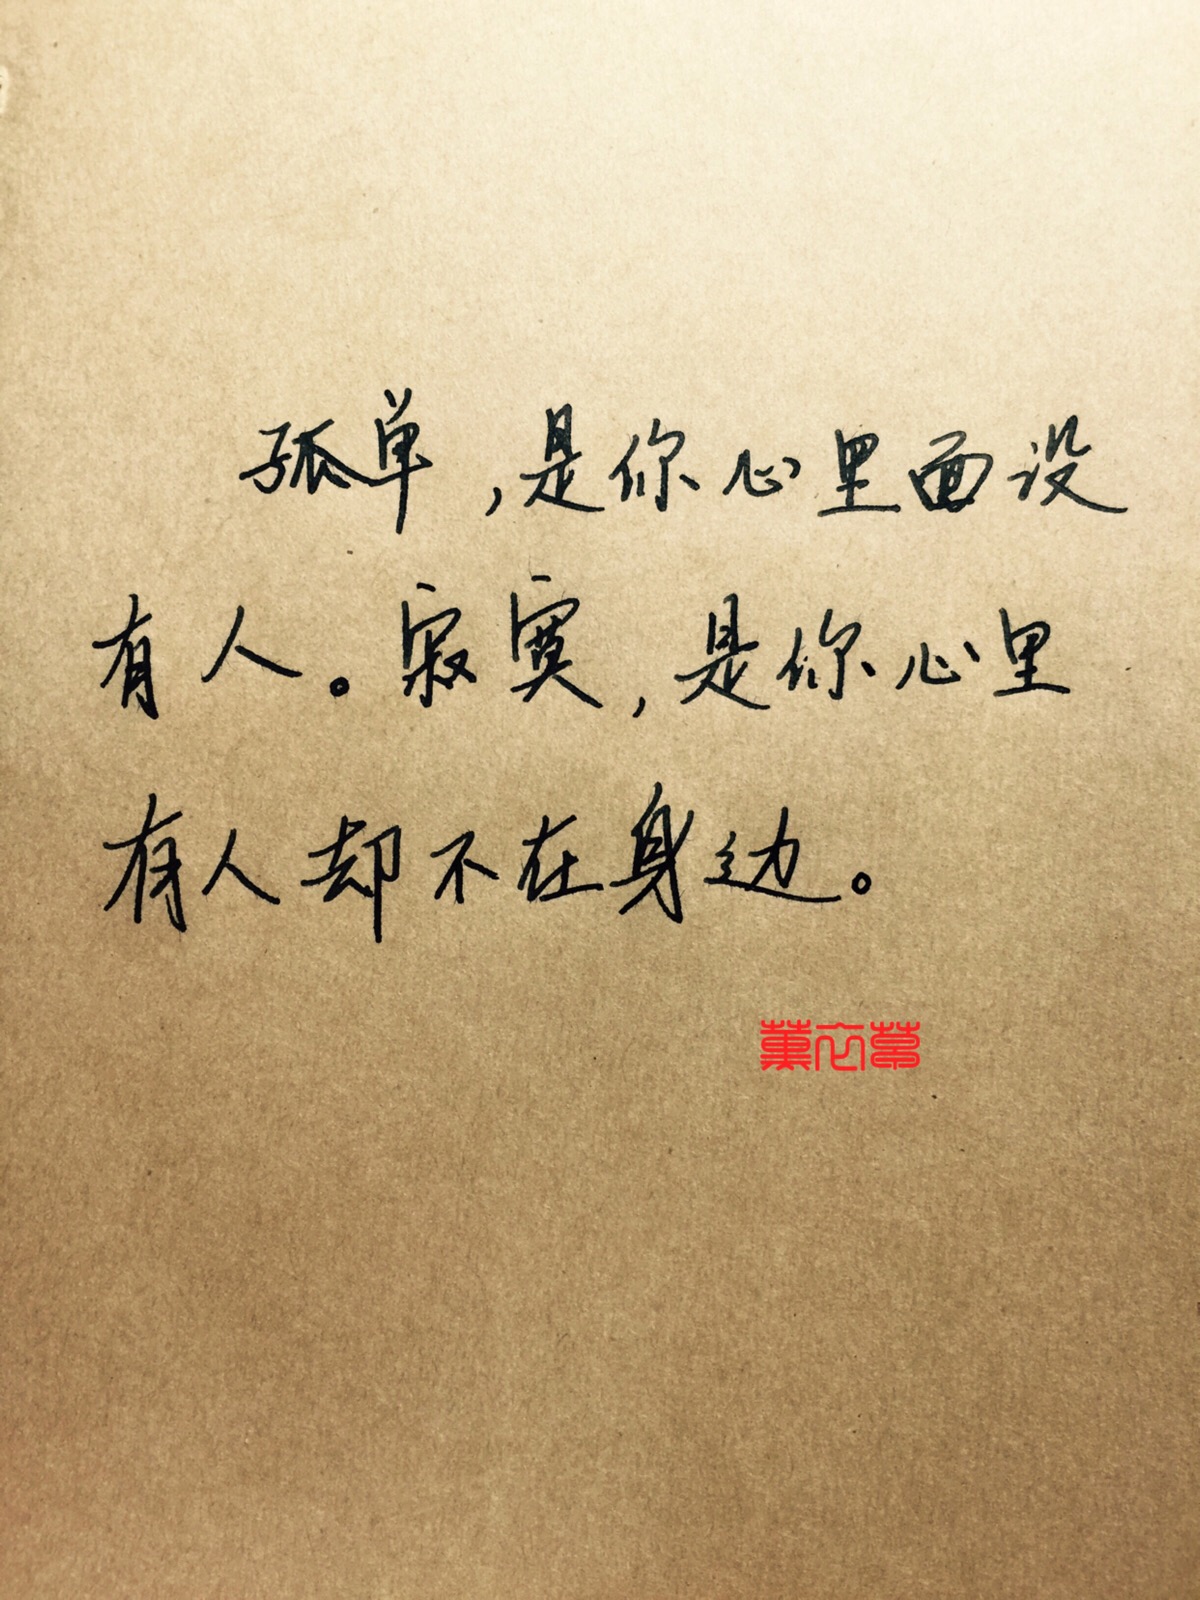 孤单,是你心里面没
有人。寂寞,是你心里
有人却不在身边。
薰衣草